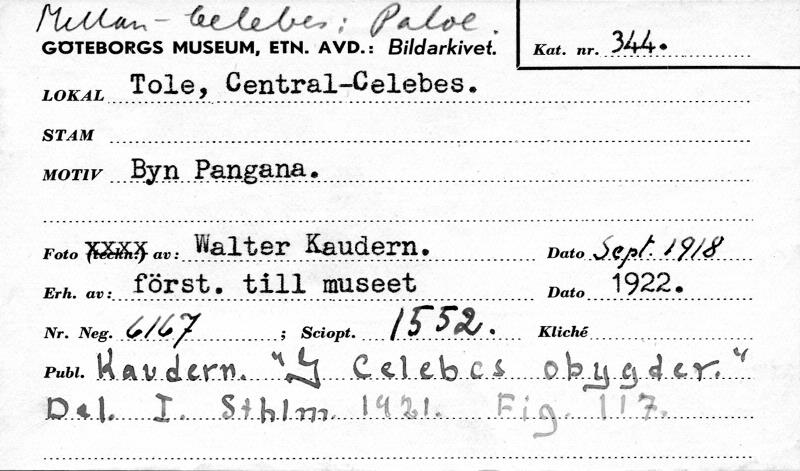 Mellan-Celebes; Paloe.
GÖTEBORGS MUSEUM, ETN. AVD.: Bildarkivet. Kat. nr. 344.
LOKAL Tole, Central-Celebes.
STAM
MOTIV Byn Pangana.
Foto (teckn.) av: Walter Kaudern. Dato Sept. 1918
Erh. av: först. till museet Dato 1922.
Nr. Neg. 6167 ; Sciopt. 1552. Kliché
Publ. Kaudern. "I Celebes obygder."
Del. I. Sthlm. 1921. Fig. 117.